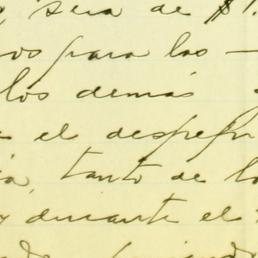 , sera de $1.
vos para los —
los demás
el despe
a, tanto de lo
y durante el